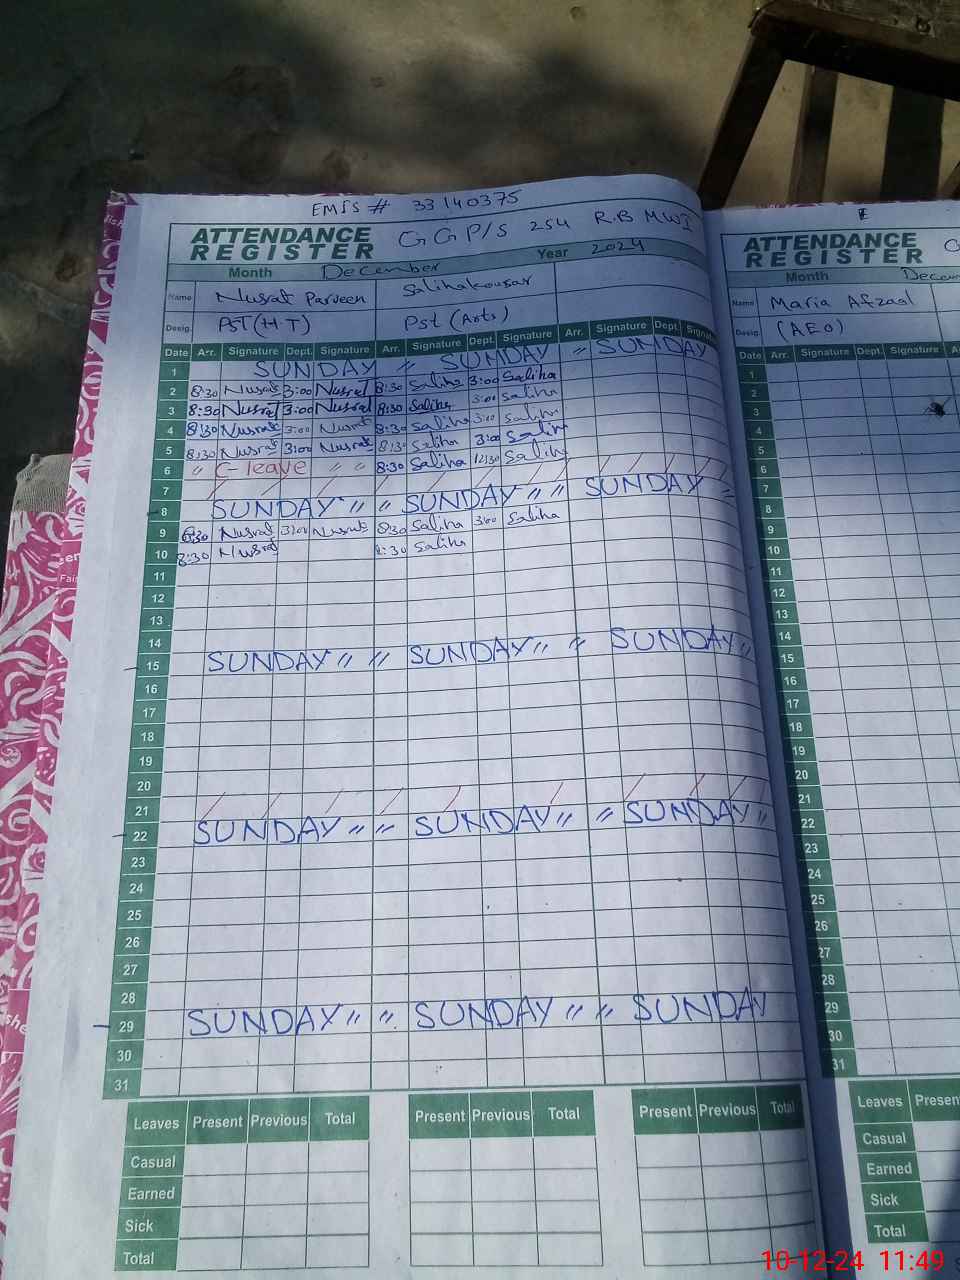 EMIS # 33140375
ATTENDANCE REGISTER GGP/S 254 R.B MWI
Month December Year 2024
Name Nusrat Parveen Salihakousar
Desig. PST (H T) Pst (Arts)
Date Arr. Signature Dept. Signature Arr. Signature Dept. Signature Arr. Signature Dept. Signature
1 SUNDAY " SUNDAY " SUNDAY
2 8:30 Nusrat 3:00 Nusrat 8:30 Saliha 3:00 Saliha
3 8:30 Nusrat 3:00 Nusrat 8:30 Saliha 3:00 Saliha
4 8:30 Nusrat 3:00 Nusrat 8:30 Saliha 3:00 Saliha
5 8:30 Nusrat 3:00 Nusrat 8:30 Saliha 3:00 Saliha
6 " C-leave " " 8:30 Saliha 12:30 Saliha
7
8 SUNDAY " " SUNDAY " " SUNDAY "
9 8:30 Nusrat 3:00 Nusrat 8:30 Saliha 3:00 Saliha
10 8:30 Nusrat 8:30 Saliha
11
12
13
14
15 SUNDAY " " SUNDAY " " SUNDAY "
16
17
18
19
20
21
22 SUNDAY " " SUNDAY " " SUNDAY "
23
24
25
26
27
28
29 SUNDAY " " SUNDAY " " SUNDAY
30
31
Leaves Present Previous Total Present Previous Total Present Previous Total
Casual
Earned
Sick
Total
ATTENDANCE REGISTER G
Month Decem
Name Maria Afzaal
Desig. (AEO)
Date Arr. Signature Dept. Signature A
1
2
3
4
5
6
7
8
9
10
11
12
13
14
15
16
17
18
19
20
21
22
23
24
25
26
27
28
29
30
31
Leaves Present
Casual
Earned
Sick
Total
10-12-24 11:49